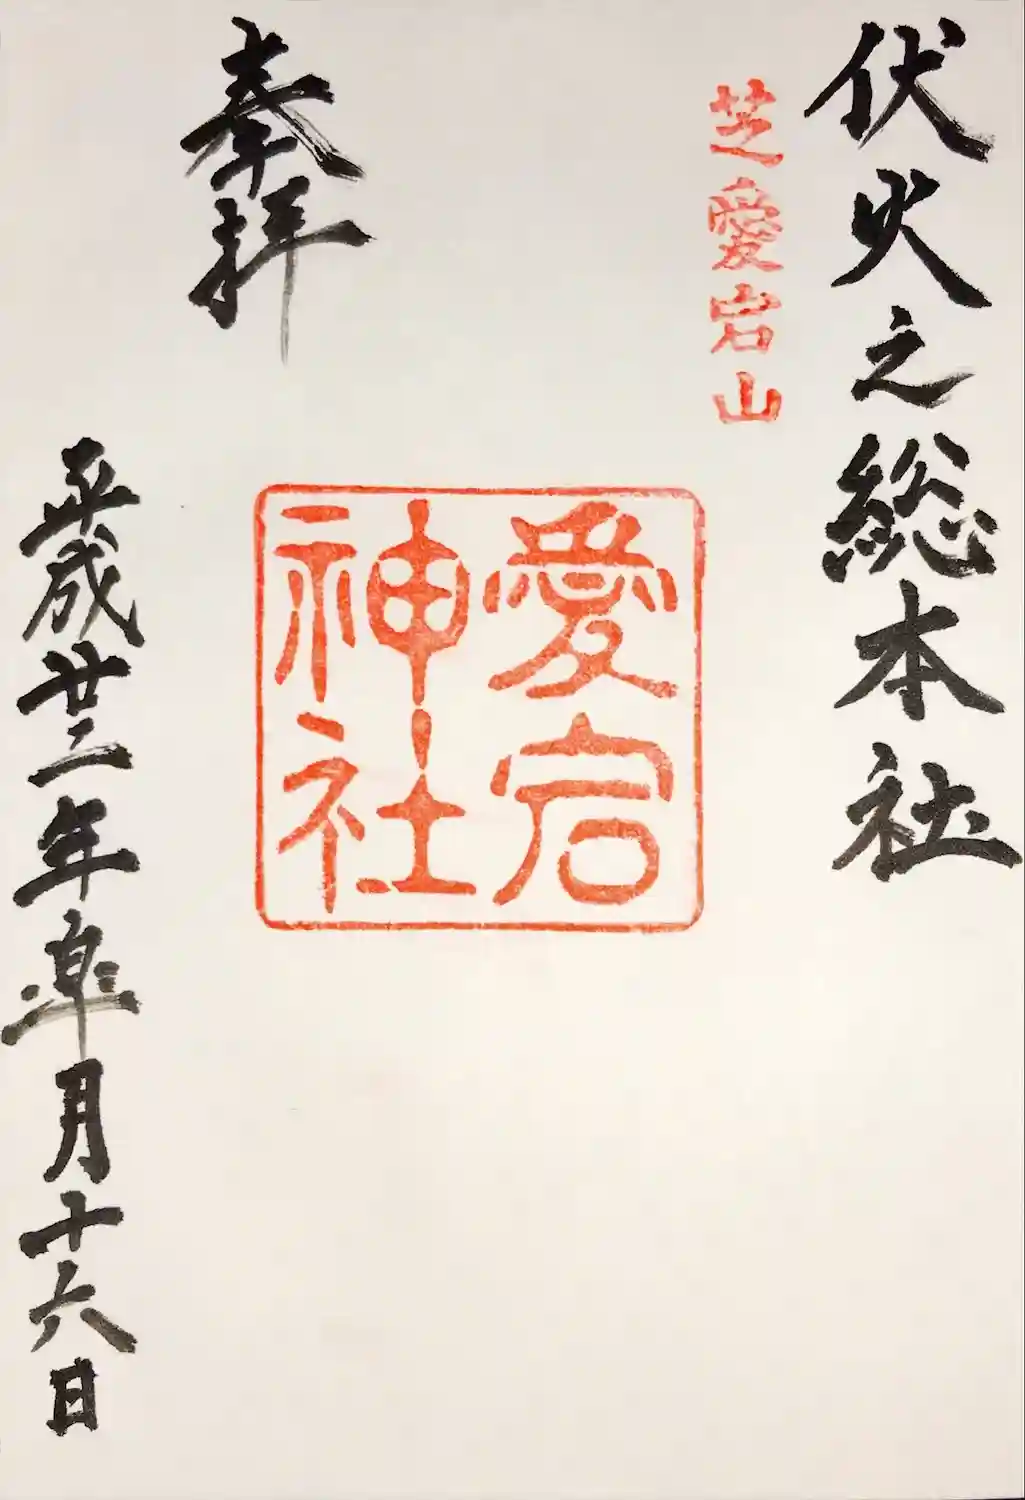 伏火之総本社
芝愛宕山
愛宕
神社
奉拝
平成廿三年皐月十六日